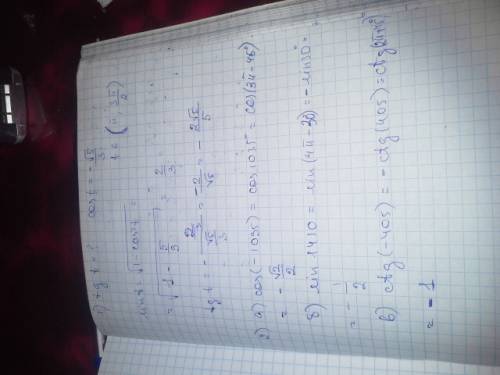 1) tg t = ?   cos t = - √5/3
t ∈ (π; 3π/2)
sin t = √1 - cos²t =
= √1 - 5/3 = 2/3
tg t = - 2/3 / √5/3 = - 2/√5 = - 2√5/5
2) a) cos(-1035) = cos 1035 = cos(3π - 45°)
= - √2/2
б) sin 1410 = sin(4π - 30) = - sin 30° =
= - 1/2
в) ctg(-405) = - ctg(405) = ctg(2π+45°)
= - 1